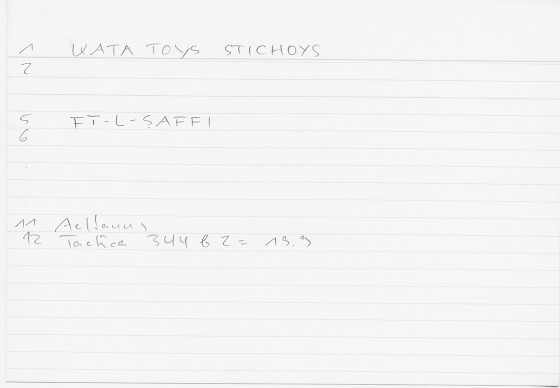 1 KATA TOYS STICHOYS
2
5 FT-L-ṢAFFI
6
11 Aelianus
12 Tactica 344 b 2 = 19.9